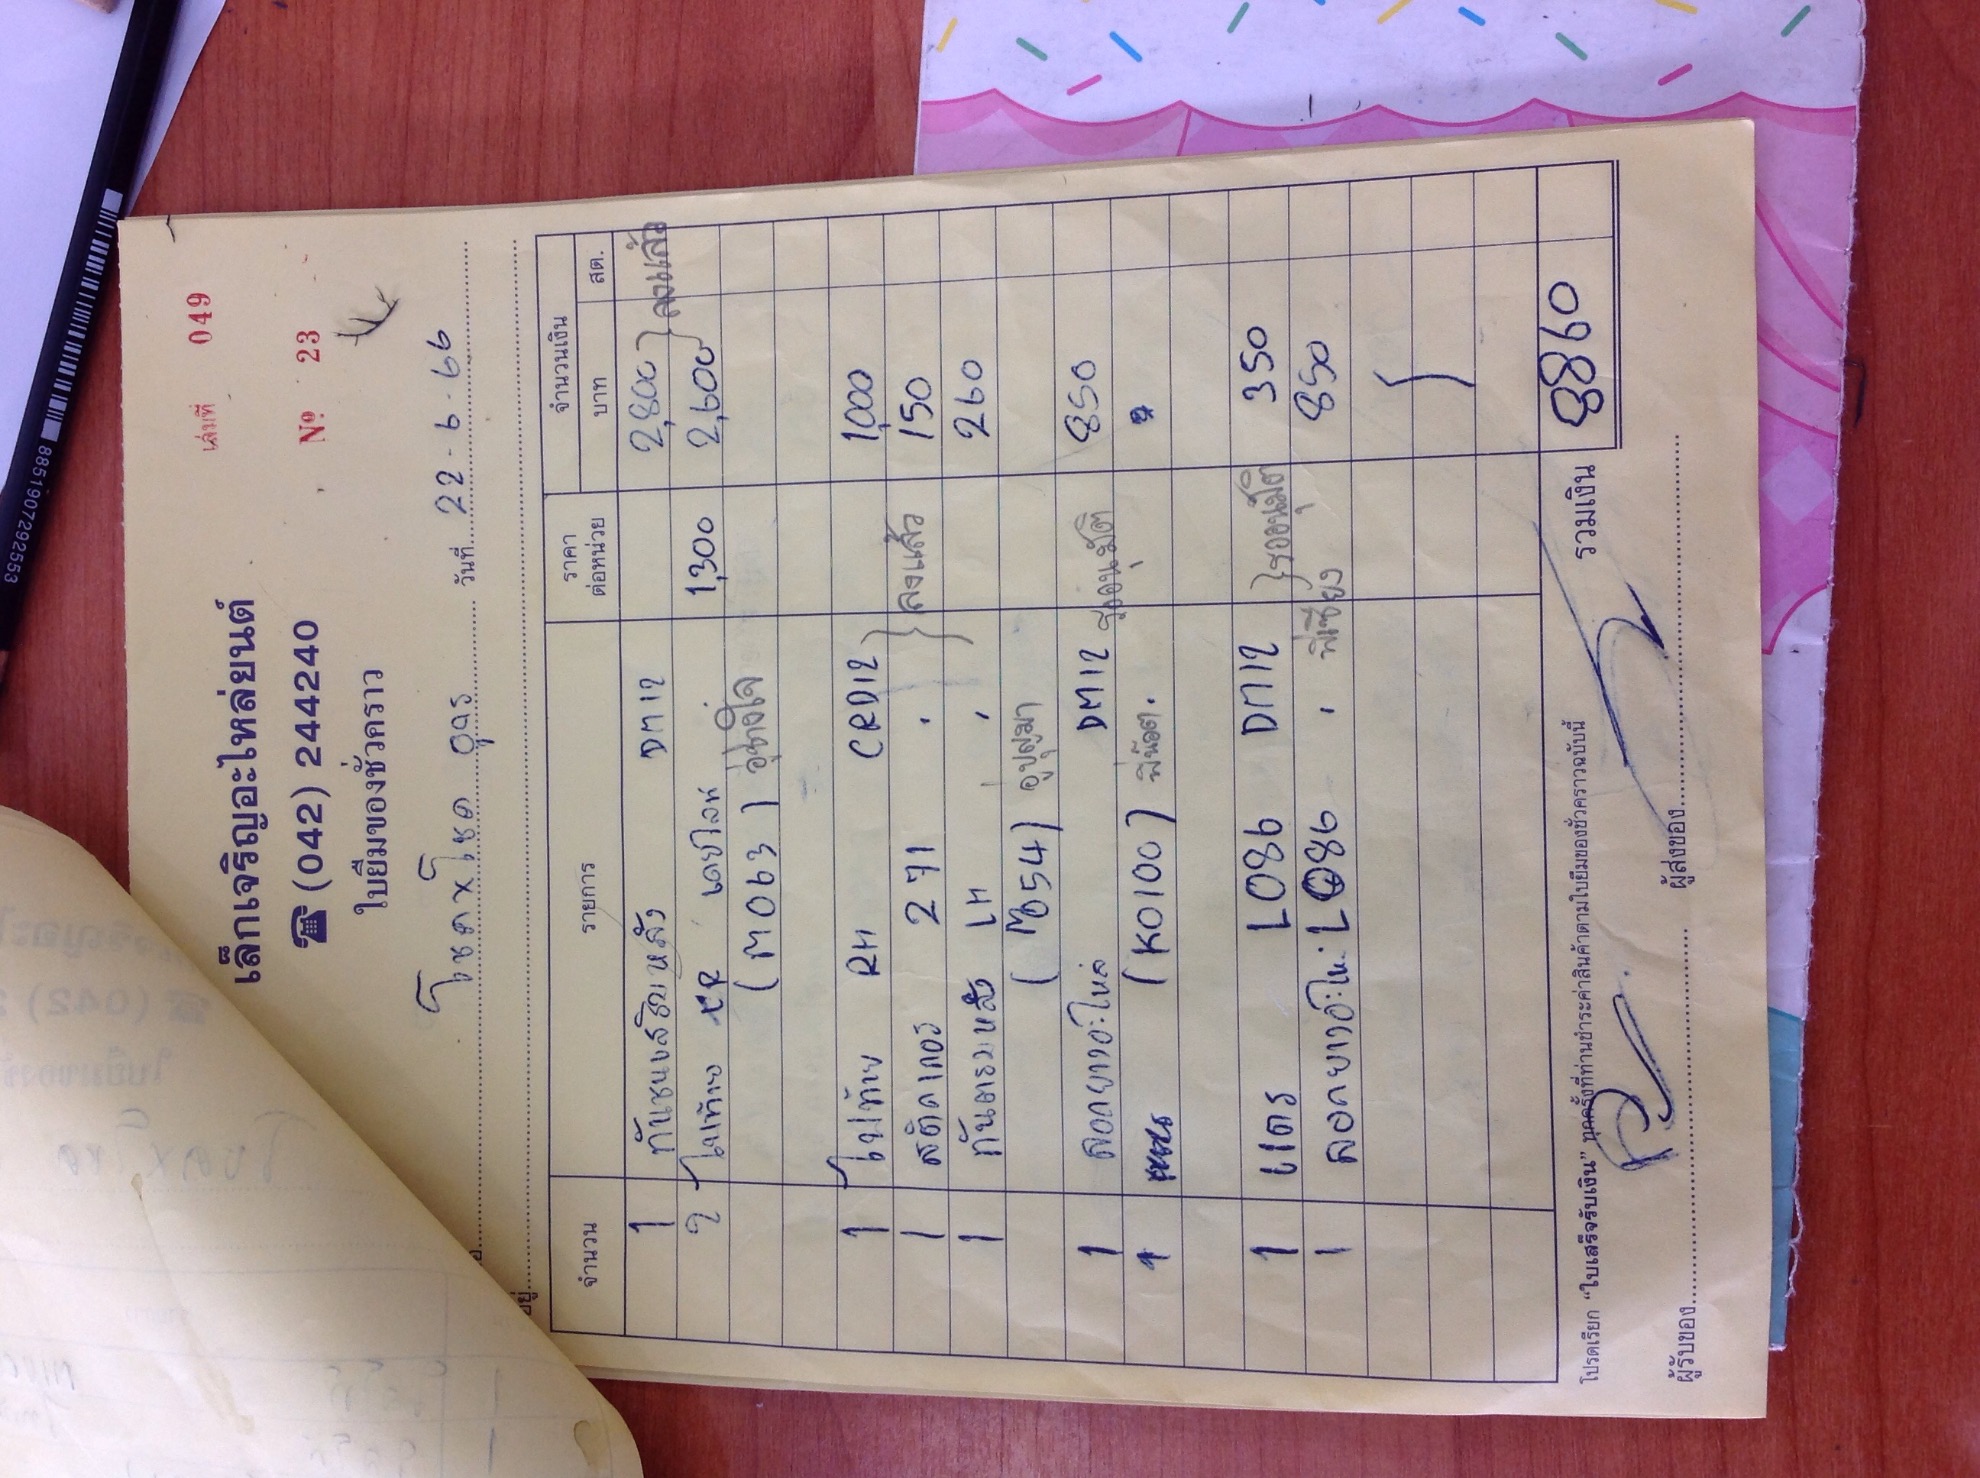 เล่มที่ 049
เล็กเจริญอะไหล่ยนต์
☎ (042) 244240
Nº 23
ใบยืมของชั่วคราว
โชคxโชค อุดร วันที่ 22-6-66
จำนวน รายการ ราคาต่อหน่วย จำนวนเงิน
บาท สต.
1 กันชนเสริมหลัง DM12 2,800 } ลงแล้ว
2 ไฟท้าย 1,300 2,600
(M063) อู่ช่างใเล่
1 ไฟท้าย RH CRD12 1,000
1 สติคเกอร์ 271 150 } ลงแล้ว
1 LH 260
554)
1 คอกยางอะไหล่ DM12 รออนุมัติ 850
1 (K0100) พี่น๊อต.
1 แตร L086 DM12 } รออนุมัติ 350
1 คอกยางอะไห: L086 850
รวมเงิน 8860
โปรดเรียก "ใบเสร็จรับเงิน" ทุกครั้งที่ท่านชำระค่าสินค้าตามใบยืมของชั่วคราวฉบับนี้
ผู้รับของ ผู้ส่งของ
8851907292553